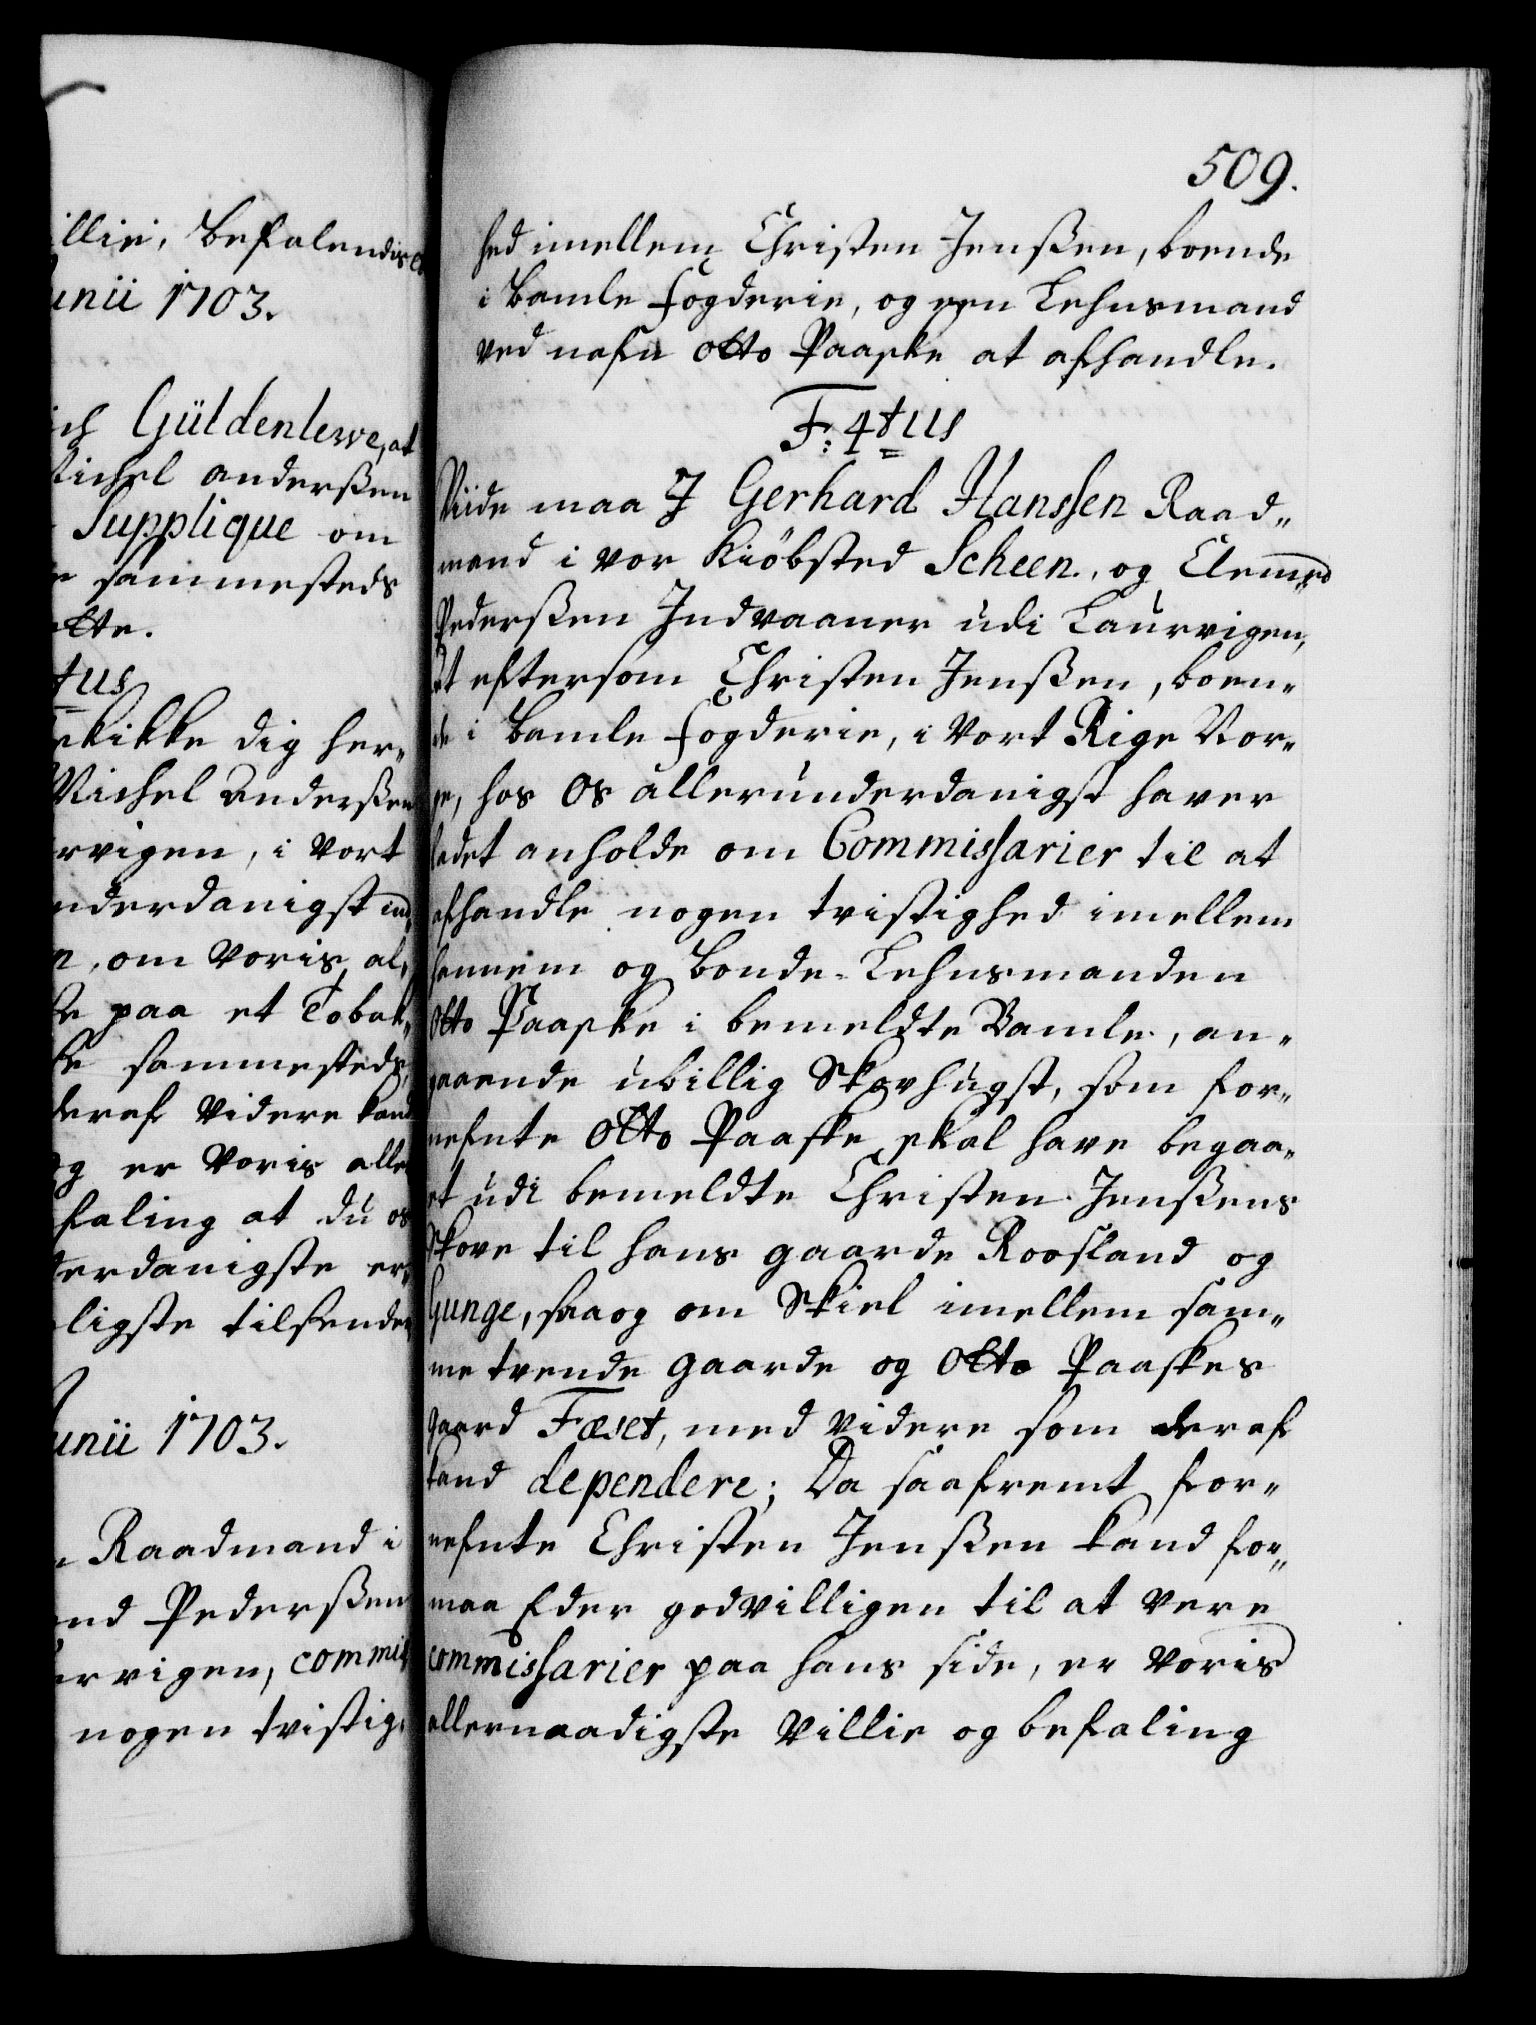 illie, Befalendis
unii 1703.
ich Güldenlewe, at
Michel Anderßen
Supplique om
sammesteds
ette.
tus
skikke dig her„
Michel Anderßen
rvigen, i Vort
underdanigst ind„
n, om Voris al„
paa et Tobak„
sammesteds,
deraf Videre kand
og er Voris aller
faling at du os
derdanigste er„
ligste tilsender
unii 1703.
Raadmand i
end Pederßen
urvigen, commis
nogen tvistig„
509.
hed imellem Christen Jenßen, boende
i Bamle fogderie, og een Lehnsmand
ved nafn Otto Paaske at afhandle.
F: 4tus
Viide maa I Gerhard Hanssen Raad„
mand i vor Kiöbsted Scheen, og Clemed
Pederßen Indvaaner udi Laurvigen,
At eftersom Christen Jenßen, boen„
de i Bamle fogderie, i Vort Rige Nor„
ge, hos Os allerunderdanigst haver
ladet anholde om Commissarier til at
afhandle nogen tvistighed imellem
hannem og Bonde-Lehnsmanden
Otto Paaske i bemeldte Bamle, an„
gaaende ubillig Skovhugst, som for„
nefnte Otto Paaske skal have begaa„
et udi bemeldte Christen Jenßens
Skove til hans gaarde Roosland og
Gunge, saa og om Skiel imellem sam„
me tvende gaarde og Otto Paaskes
gaard Fæset, med Videre som deraf
kand dependere; Da saafremt for„
nefnte Christen Jenßen kand for„
maa Eder godvilligen til at vere
commissarier paa hans side, er Voris
allernaadigste Villie og befaling